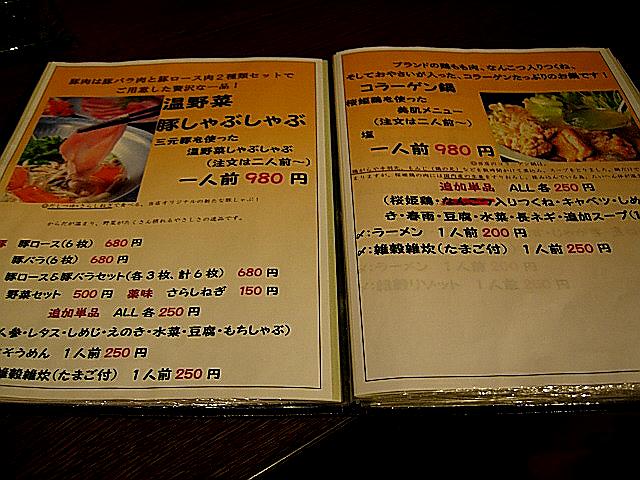 豚肉は豚バラ肉と豚ロース肉2種類セットで
ご用意した贅沢な一品！
温野菜
豚しゃぶしゃぶ
三元豚を使った
温野菜しゃぶしゃぶ
(注文は二人前～)
一人前 980 円
からだが温まり、野菜がたくさん摂れるやさしさの逸品です。
豚ロース(6枚) 680円
豚バラ(6枚) 680円
豚ロース&豚バラセット(各3枚、計6枚) 680円
野菜セット 500円 薬味 さらしねぎ 150円
追加単品 ALL各250円
人参・レタス・しめじ・えのき・水菜・豆腐・もちしゃぶ)
そうめん 1人前250円
雑穀雑炊(たまご付) 1人前250円
ブランドの鶏もも肉、なんこつ入りつくね、
そしておやさいが入った、コラーゲンたっぷりのお鍋です！
コラーゲン鍋
桜姫鶏を使った
美肌メニュー
(注文は二人前～)
塩
一人前 980 円
追加単品 ALL各250円
(桜姫鶏・なんこつ入りつくね・キャベツ・しめ
き・春雨・豆腐・水菜・長ネギ・追加スープ(1
〆:ラーメン 1人前200円
〆:雑穀雑炊(たまご付) 1人前 250円